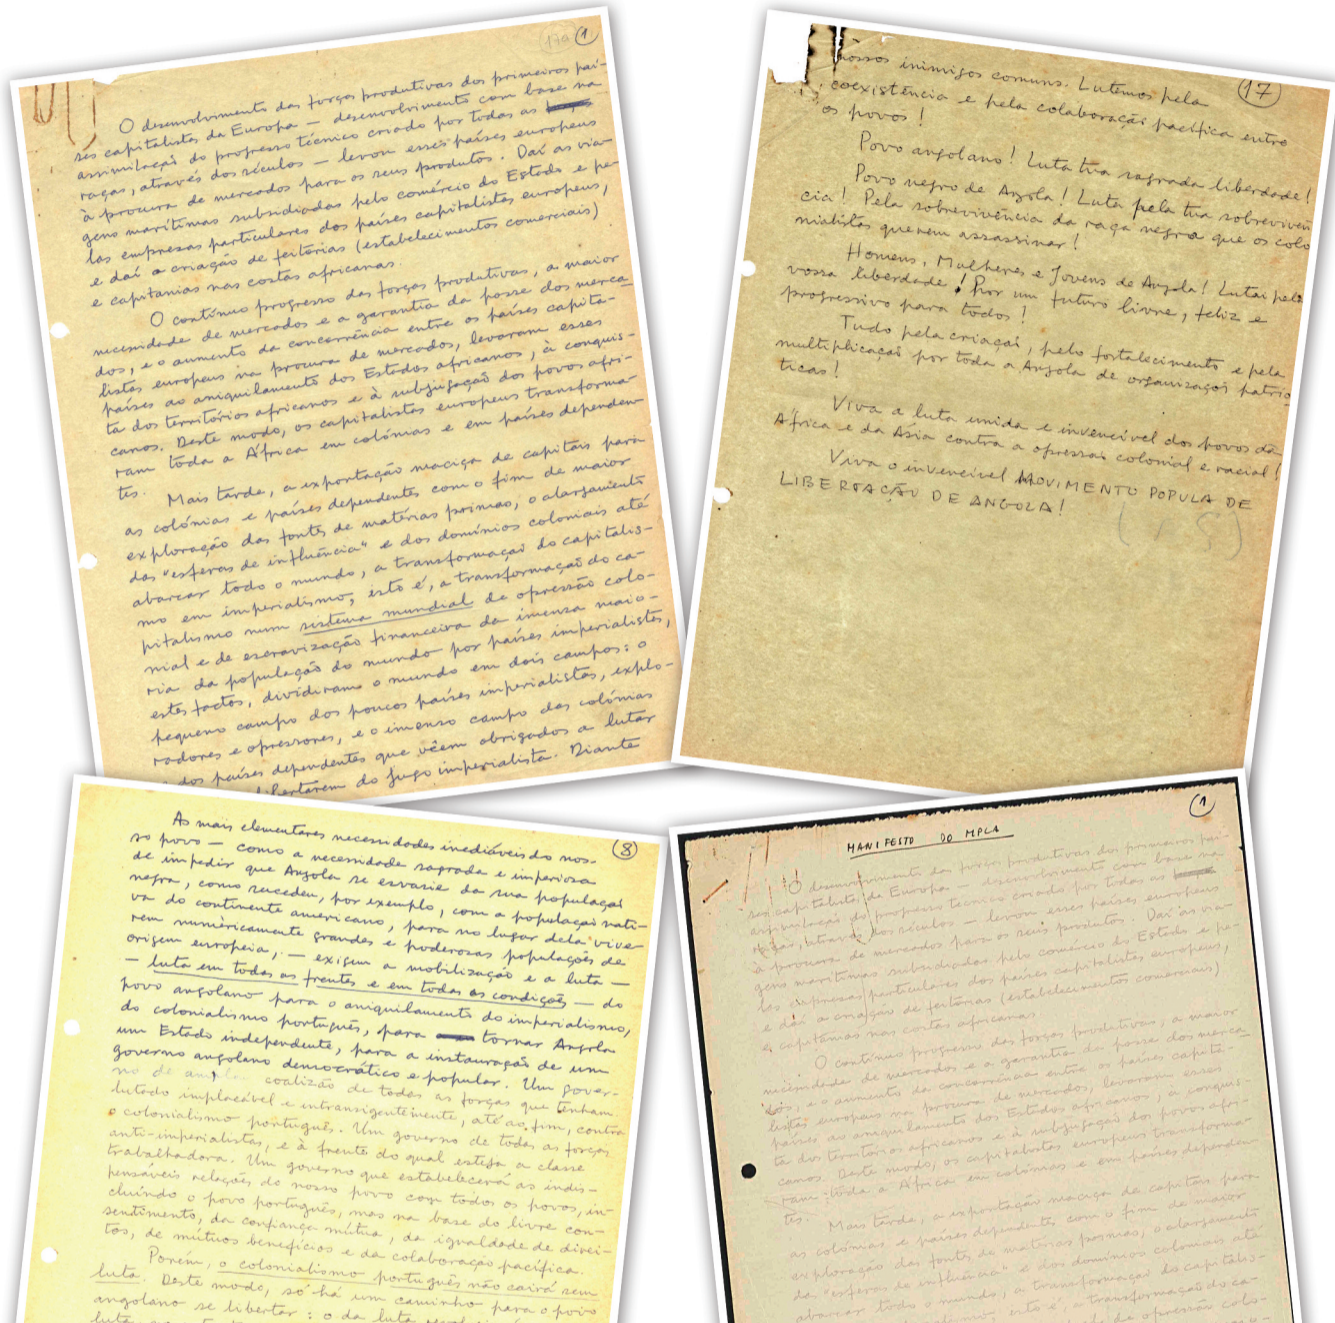 179 1
O desenvolvimento das forças produtivas dos primeiros paí-
ses capitalistas da Europa — desenvolvimento com base na
assimilação do progresso técnico criado por todas as
raças, através dos séculos — levou esses países europeus
à procura de mercados para os seus produtos. Daí as via-
gens marítimas subsidiadas pelo comércio do Estado e pe-
las empresas particulares dos países capitalistas europeus,
e daí a criação de feitorias (estabelecimentos comerciais)
e capitanias nas costas africanas.
O contínuo progresso das forças produtivas, a maior
necessidade de mercados e a garantia da posse dos merca-
dos, e o aumento da concorrência entre os países capita-
listas europeus na procura de mercados, levaram esses
países ao aniquilamento dos Estados africanos, à conquis-
ta dos territórios africanos e à subjugação dos povos afri-
canos. Deste modo, os capitalistas europeus transforma-
ram toda a África em colónias e em países dependen-
tes.
Mais tarde, a exportação maciça de capitais para
as colónias e países dependentes com o fim de maior
exploração das fontes de matérias primas, o alargamento
das "esferas de influência" e dos domínios coloniais até
abarcar todo o mundo, a transformação do capitalis-
mo em imperialismo, isto é, a transformação do ca-
pitalismo num sistema mundial de opressão colo-
nial e de escravização financeira da imensa maio-
ria da população do mundo por países imperialistes,
estes factos, dividiram o mundo em dois campos: o
pequeno campo dos poucos países imperialistas, explo-
radores e opressores, e o imenso campo das colónias
dos países dependentes que vêem obrigados a lutar
libertarem do jugo imperialista. Diante
17
nossos inimigos comuns. Lutemos pela
coexistência e pela colaboração pacífica entre
os povos!
Povo angolano! Luta tua sagrada liberdade!
Povo negro de Angola! Luta pela tua sobreviven
cia! Pela sobrevivência da raça negra que os colo
nialistas querem assassinar!
Homens, Mulheres e Jovens de Angola! Lutai pela
vossa liberdade! Por um futuro livre, feliz e
progressivo para todos!
Tudo pela criação, pelo fortalecimento e pela
multiplicação por toda a Angola de organizações patrió
ticas!
Viva a luta unida e invencível dos povos da
África e da Ásia contra a opressão colonial e racial!
Viva o invencível MOVIMENTO POPULA DE
LIBERTAÇÃO DE ANGOLA!
8
As mais elementares necessidades inediáveis do nos-
so povo — como a necessidade sagrada e imperiosa
de impedir que Angola se esvazie da sua população
negra, como sucedeu, por exemplo, com a população nati-
va do continente americano, para no lugar dela vive-
rem numèricamente grandes e poderosas populações de
origem europeia, — exigem a mobilização e a luta —
— luta em todas as frentes e em todas as condições — do
povo angolano para o aniquilamento do imperialismo,
do colonialismo português, para tornar Angola
um Estado independente, para a instauração de um
governo angolano democrático e popular. Um gover-
no de ampla coalizão de todas as forças que tenham
lutado implacável e intransigentemente, até ao fim, contra
o colonialismo português. Um governo de todas as forças
anti-imperialistas, e à frente do qual esteja a classe
trabalhadora. Um governo que estabelecerá as indis-
pensáveis relações do nosso povo com todos os povos, in-
cluindo o povo português, mas na base do livre con-
sentimento, da confiança mútua, da igualdade de direi-
tos, de mútuos benefícios e da colaboração pacífica.
Porém, o colonialismo português não cairá sem
luta. Deste modo, só há um caminho para o povo
angolano se libertar: o da luta
1
MANIFESTO DO MPLA
O desenvolvimento das forças produtivas dos primeiros paí-
ses capitalistas da Europa — desenvolvimento com base na
assimilação do progresso técnico criado por todas as
raças, através dos séculos — levou esses países europeus
à procura de mercados para os seus produtos. Daí as via-
gens marítimas subsidiadas pelo comércio do Estado e pe-
las empresas particulares dos países capitalistas europeus,
e daí a criação de feitorias (estabelecimentos comerciais)
e capitanias nas costas africanas.
O contínuo progresso das forças produtivas, a maior
necessidade de mercados e a garantia da posse dos merca-
dos, e o aumento da concorrência entre os países capita-
listas europeus na procura de mercados, levaram esses
países ao aniquilamento dos Estados africanos, à conquis-
ta dos territórios africanos e à subjugação dos povos afri-
canos. Deste modo, os capitalistas europeus transforma-
ram toda a África em colónias e em países dependen-
tes.
Mais tarde, a exportação maciça de capitais para
as colónias e países dependentes com o fim de maior
exploração das fontes de matérias primas, o alargamento
das "esferas de influência" e dos domínios coloniais até
abarcar todo o mundo, a transformação do capitalis-
isto é, a transformação do ca-
de opressão colo-